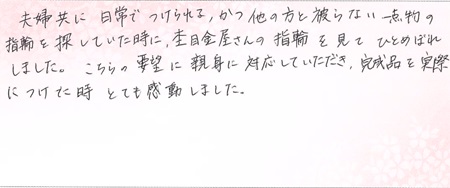 夫婦共に日常でつけられる、かつ他の方と被らない一点物の
指輪を探していた時に、杢目金屋さんの指輪を見てひとめぼれ
しました。こちらの要望に親身に対応していただき、完成品を実際
につけた時とても感動しました。